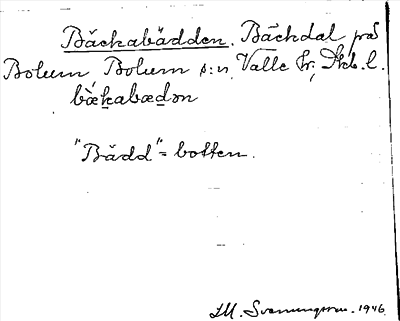 Bäckabädden. Bäckdal på
Bolum, Bolum s:n, Valle hr, Skb. l.
bæ̀kabædən
"Bädd" = botten.
I. M. Svenungsson. 1946.